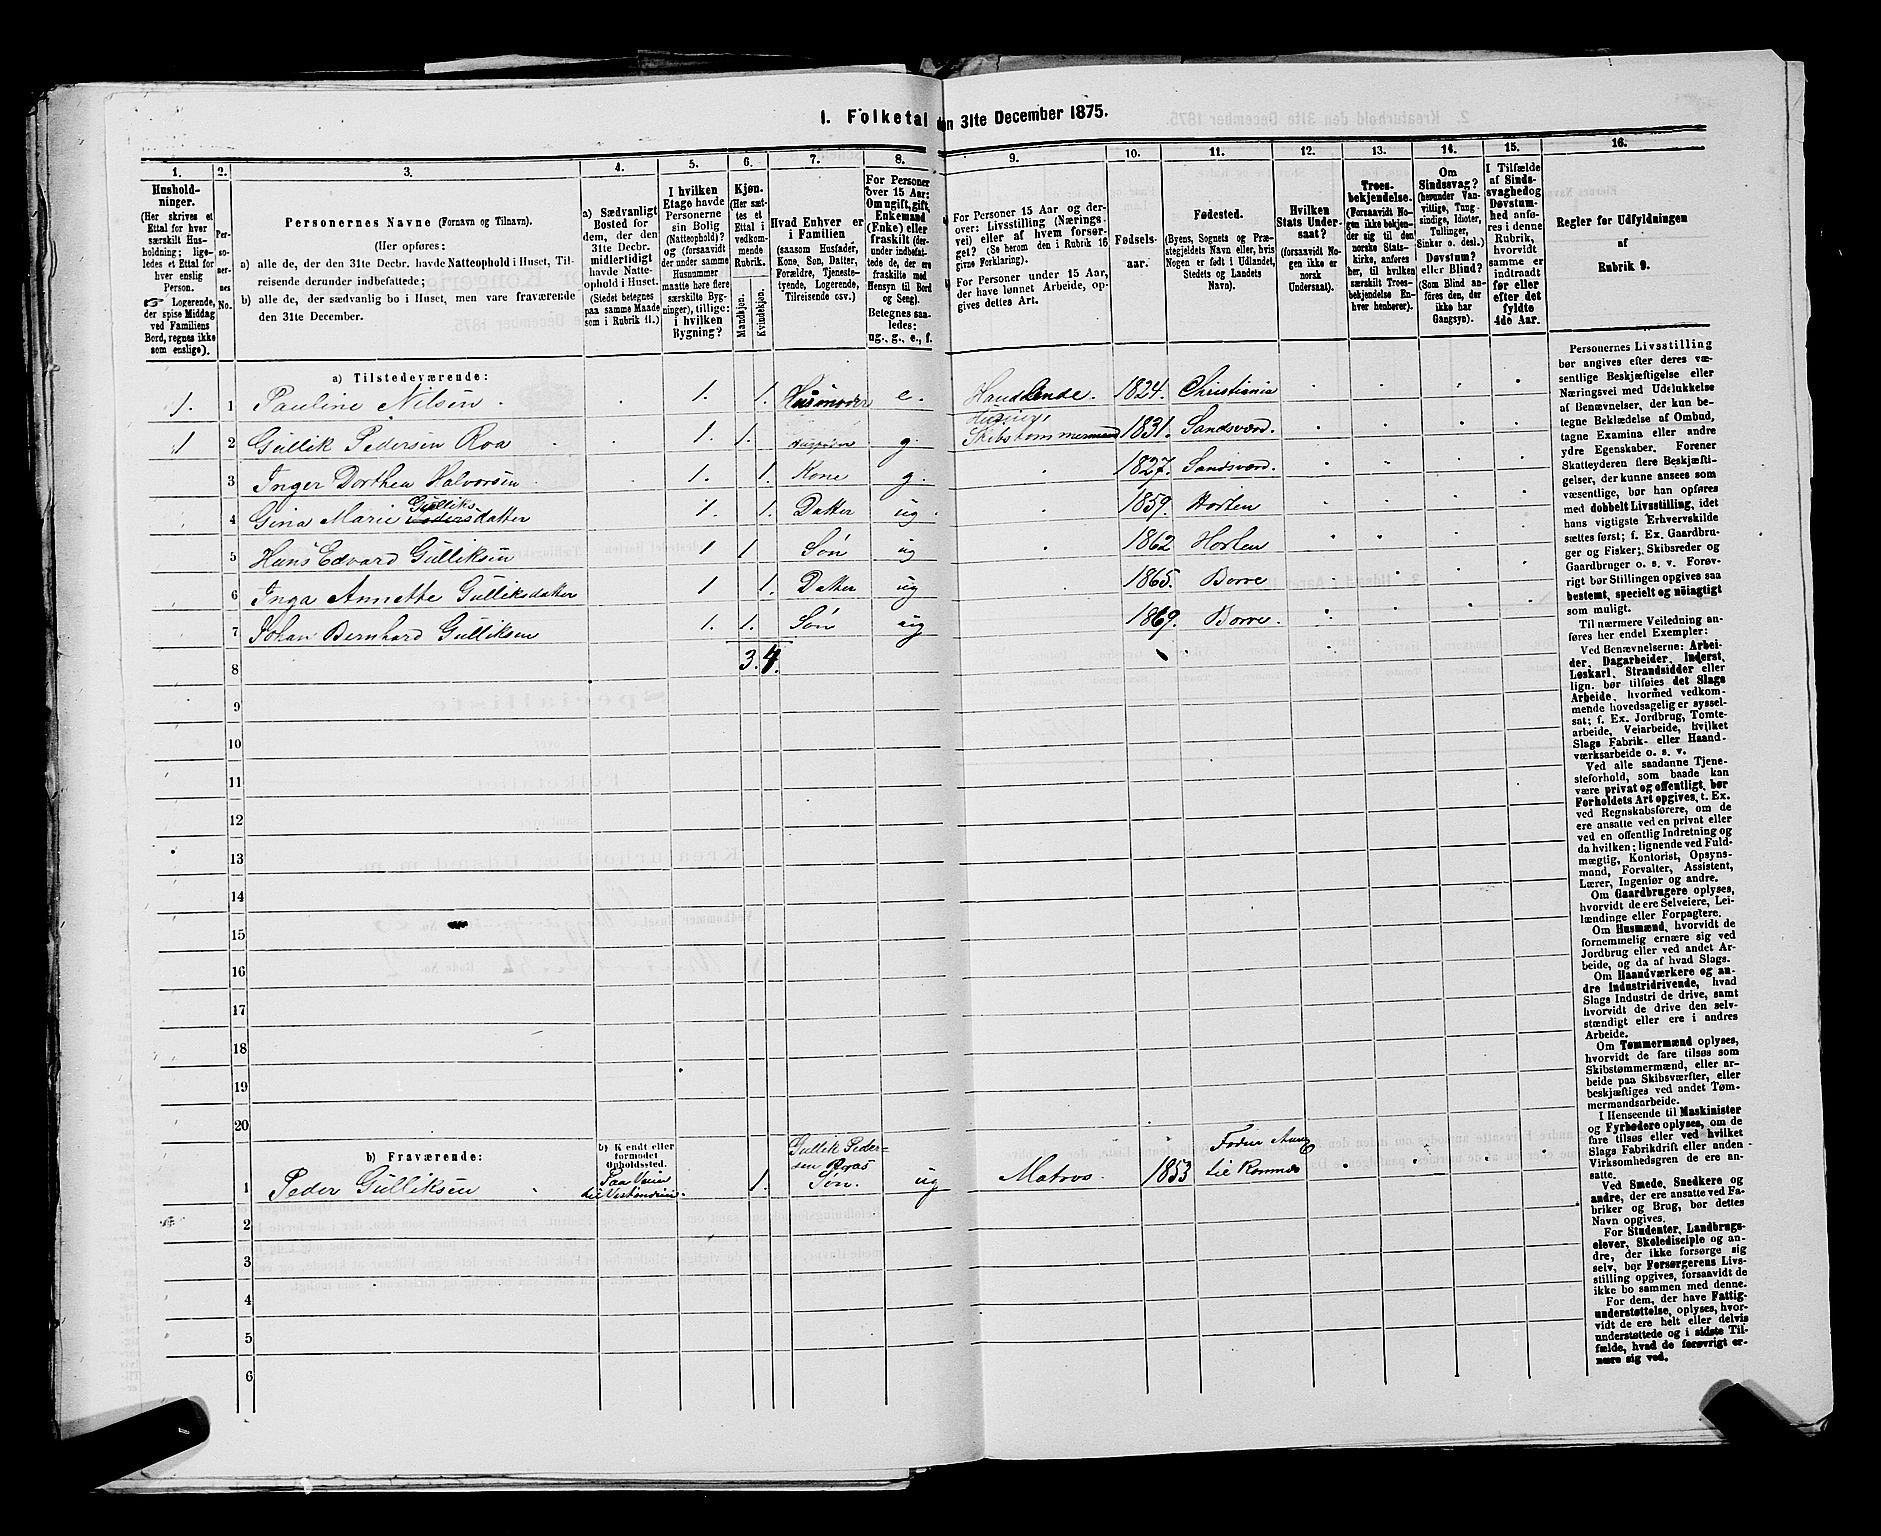 1. Folketal den 31te December 1875.
1. 2. 3. 4. 5. 6. 7. 8. 9. 10. 11. 12. 13. 14. 15. 16.
Hushold-
ninger.
(Her skrives et
Ettal for hver
særskilt Hus-
holdning; lige-
ledes et Ettal for
hver enslig
Person.
☞ Logerende,
der spise Middag
ved Familiens
Bord, regnes ikke
som enslige).
Per-
so-
ner-
nes
No.
Personernes Navne (Fornavn og Tilnavn).
(Her opføres:
a) alle de, der den 31te Decbr. havde Natteophold i Huset, Til-
reisende derunder indbefattede;
b) alle de, der sædvanlig bo i Huset, men vare fraværende
den 31te December.
a) Sædvanligt
Bosted for
dem, der den
31te Decbr.
midlertidigt
havde Natte-
ophold i Huset.
(Stedet betegnes
paa samme Maade
som i Rubrik 11.)
I hvilken
Etage havde
Personerne
sin Bolig
(Natteophold)?
og (forsaavidt
der under samme
Husnummer
maatte høre flere
særskilte Byg-
ninger), tillige:
i hvilken
Bygning?
Kjøn.
(Her sæt-
tes et
Ettal i
vedkom-
mende
Rubrik.
Mandkjøn.
Kvindekjøn.
Hvad Enhver er
i Familien
(saasom Husfader,
Kone, Søn, Datter,
Forældre, Tjeneste-
tyende, Logerende,
Tilreisende osv.)
For Personer
over 15 Aar:
Om ugift, gift,
Enkemand
(Enke) eller
fraskilt (der-
under indbefat-
tede de, der ere
fraskilte med
Hensyn til Bord
og Seng).
Betegnes saa-
ledes:
ug., g., e., f.
For Personer 15 Aar og der-
over: Livsstilling (Nærings-
vei) eller af hvem forsør-
get? (Se herom den i Rubrik 16
givne Forklaring).
For Personer under 15 Aar,
der have lønnet Arbeide, op-
gives dettes Art.
Fødsels-
aar.
Fødested.
(Byens, Sognets og Præ-
stegjeldets Navn eller, hvis
Nogen er født i Udlandet,
Stedets og Landets
Navn).
Hvilken
Stats Under-
saat?
(forsaavidt No-
gen ikke er
norsk
Undersaat).
Troes-
bekjendelse.
(Forsaavidt No-
gen ikke bekjen-
der sig til den
norske Stats-
kirke, anføres
her, til hvilken
særskilt Troes-
bekjendelse En-
hver henhører).
Om
Sindssvag?
(herunder Van-
vittige, Tung-
sindige, Idioter,
Tullinger,
Sinker o. desl.)
Døvstum?
eller Blind?
(Som Blind an-
føres den, der
ikke har
Gangsyn).
I Tilfælde
af Sinds-
svaghed og
Døvstum-
hed anfø-
res i denne
Rubrik,
hvorvidt
samme er
indtraadt
før eller
efter det
fyldte
4de Aar.
Regler for Udfyldningen
af
Rubrik 9.
a) Tilstedeværende:
1. 1 Pauline Nilsen . . 1. 1. Husmoder e. Handlende. 1824. Christiania
1 2 Gullik Pedersen Roa . 1. 1. Husfader g. Skibstømmermand 1831. Sandsværd.
3 Inger Dorthea Halvorsen . 1. 1. Kone g. 1827. Sandsværd.
4 Gina Marie Gulliksdatter 1. 1. Datter ug. 1859. Horten
5 Hans Edvard Gulliksen 1 1 Søn ug 1862 Horten
6 Inga Annette Gulliksdatter 1 1. Datter ug 1865. Borre
7 Johan Bernhard Gulliksen 1. 1. Søn ug 1869. Borre.
8 3. 4.
9
10
11
12
13
14
15
16
17
18
19
20
b) Fraværende:
b) Kjendt eller
formodet
Opholdssted.
1 Peder Gulliksen Paa Veien til Vestindien. 1. Gullik Pedersen Roas Søn. ug Matros. 1853
2
3
4
5
6
Personernes Livsstilling
bør angives efter deres væ-
sentlige Beskjæftigelse eller
Næringsvei med Udelukkelse
af Benævnelser, der kun be-
tegne Beklædelse af Ombud,
tagne Examina eller andre
ydre Egenskaber. Forener
Skatteyderen flere Beskjæfti-
gelser, der kunne ansees som
væsentlige, bør han opføres
med dobbelt Livsstilling, idet
hans vigtigste Erhvervskilde
sættes først; f. Ex. Gaardbru-
ger og Fisker; Skibsreder og
Gaardbruger o. s. v. Forøv-
rigt bør Stillingen opgives saa
bestemt, specielt og nøiagtigt
som muligt.
Til nærmere Veiledning an-
føres her endel Exempler:
Ved Benævnelserne: Arbei-
der, Dagarbeider, Inderst,
Løskarl, Strandsidder eller
lign. bør tilføies det Slags
Arbeide, hvormed vedkom-
mende hovedsagelig er syssel-
sat; f. Ex. Jordbrug, Tomte-
arbeide, Veiarbeide, hvilket
Slags Fabrik- eller Haand-
værksarbeide o. s. v.
Ved alle saadanne Tjene-
steforhold, som baade kan
være privat og offentligt, bør
Forholdets Art opgives, t. Ex.
ved Regnskabsførere, om de
ere ansatte ved en privat eller
ved en offentlig Indretning og
da hvilken; lignende ved Fuld-
mægtig, Kontorist, Opsyns-
mand, Forvalter, Assistent,
Lærer, Ingeniør og andre.
Om Gaardbrugere oplyses,
hvorvidt de ere Selveiere, Lei-
lændinge eller Forpagtere.
Om Husmænd, hvorvidt de
fornemmelig ernære sig ved
Jordbrug eller ved andet Ar-
beide, og da af hvad Slags.
Om Haandværkere og an-
dre Industridrivende, hvad
Slags Industri de drive, samt
hvorvidt de drive den selv-
stændigt eller ere i andres
Arbeide.
Om Tømmermænd oplyses,
hvorvidt de fare tilsøs som
Skibstømmermænd, eller ar-
beide paa Skibsværfter, eller
beskjæftiges ved andet Tøm-
mermandsarbeide.
I Henseende til Maskinister
og Fyrbødere oplyses, om de
fare tilsøs eller ved hvilket
Slags Fabrikdrift eller anden
Virksomhedsgren de ere an-
satte.
Ved Smede, Snedkere og
andre, der ere ansatte ved Fa-
briker og Brug, bør dettes
Navn opgives.
For Studenter, Landbrugs-
elever, Skoledisciple og an-
dre, der ikke forsørge sig
selv, bør Forsørgerens Livs-
stilling opgives, forsaavidt de
ikke bo sammen med denne.
For dem, der have Fattig-
understøttelse, oplyses, hvor-
vidt de ere helt eller delvis
understøttede og i sidste Til-
fælde, hvad de forøvrigt er-
nære sig ved.